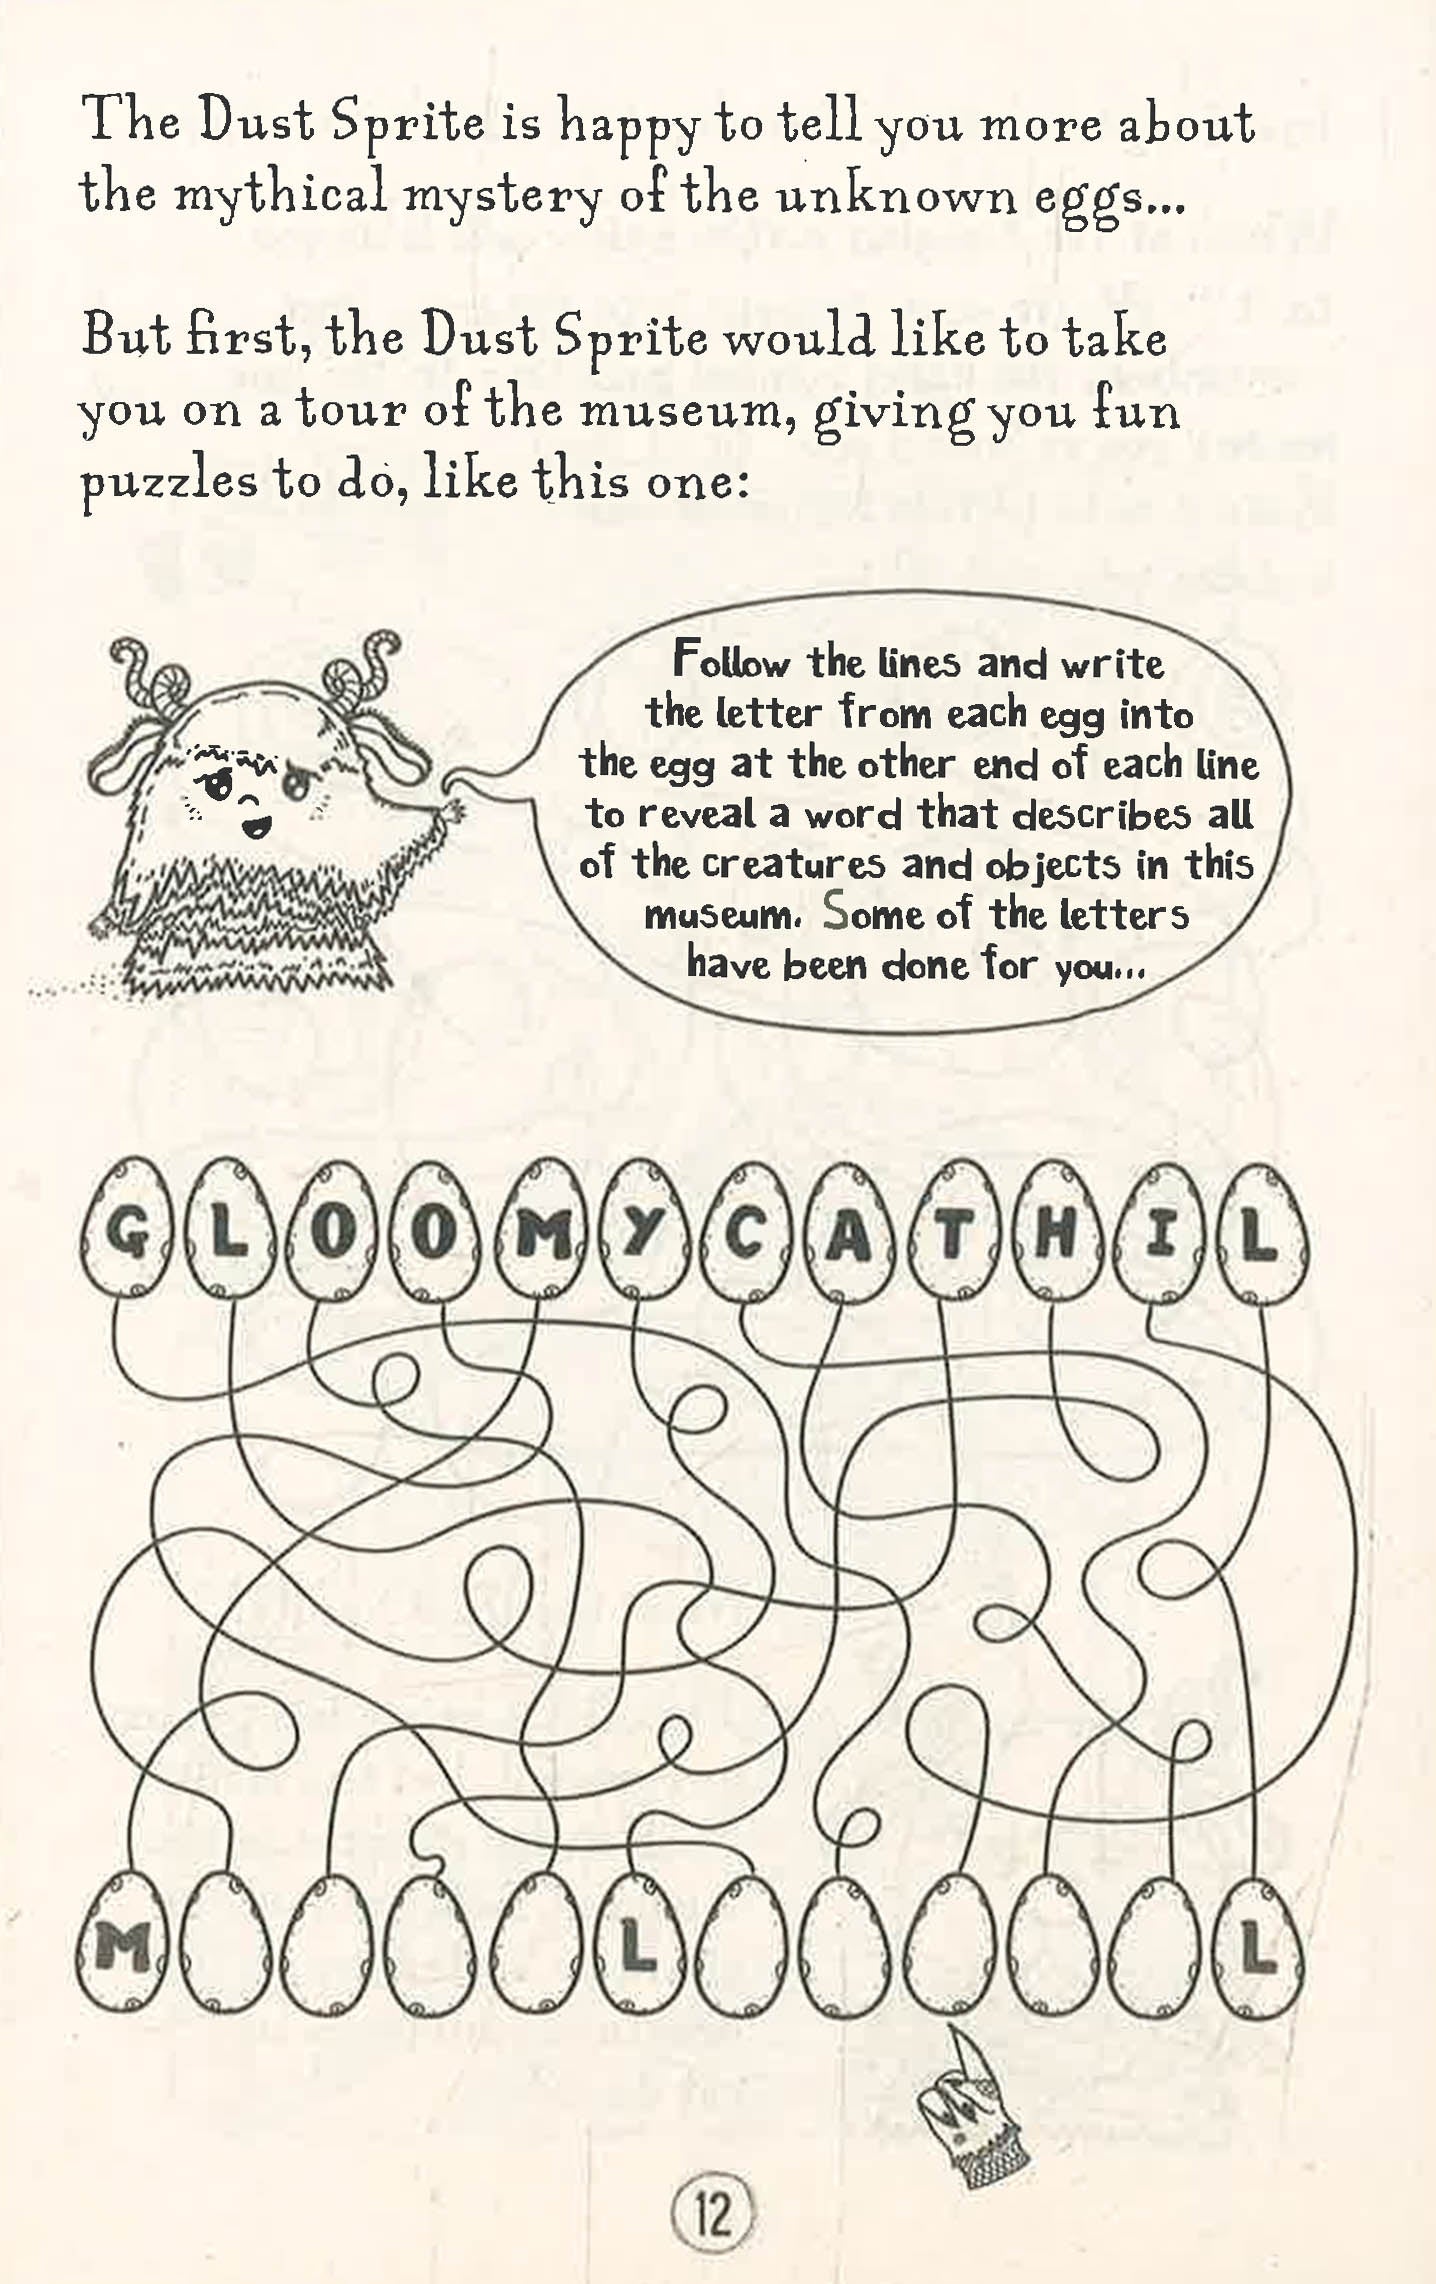 The Dust Sprite is happy to tell you more about
the mythical mystery of the unknown eggs...
But first, the Dust Sprite would like to take
you on a tour of the museum, giving you fun
puzzles to do, like this one:
Follow the lines and write
the letter from each egg into
the egg at the other end of each line
to reveal a word that describes all
of the creatures and objects in this
museum. Some of the letters
have been done for you...
G L O O M Y C A T H I L
M L L
12